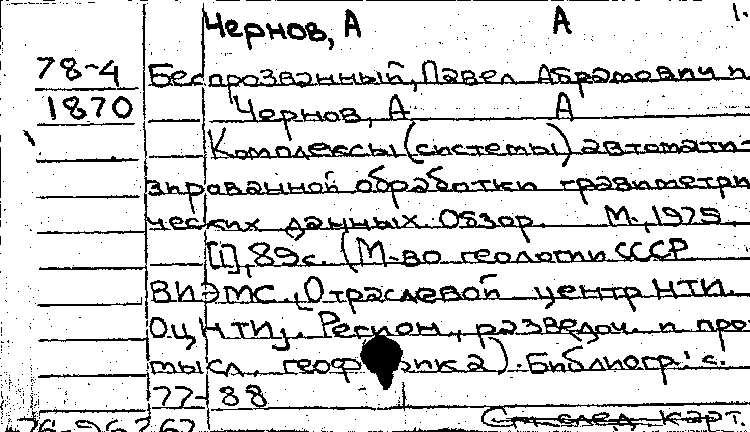 Чернов, А А 1.
78-4 Беспрозванный, Павел Абрамович и
1870 Чернов, А. А
Комплексы (системы) автомати-
зированной обработки гравиметри
ческих данных. Обзор. М., 1975
[1], 89с. (М-во геологии СССР
ВИЭМС., Отраслевой центр НТИ.
ОЦНТИ,. Регион., развёдоч. и про
мысл. геофизика). Библиогр.: с.
77-88
См. след. карт.